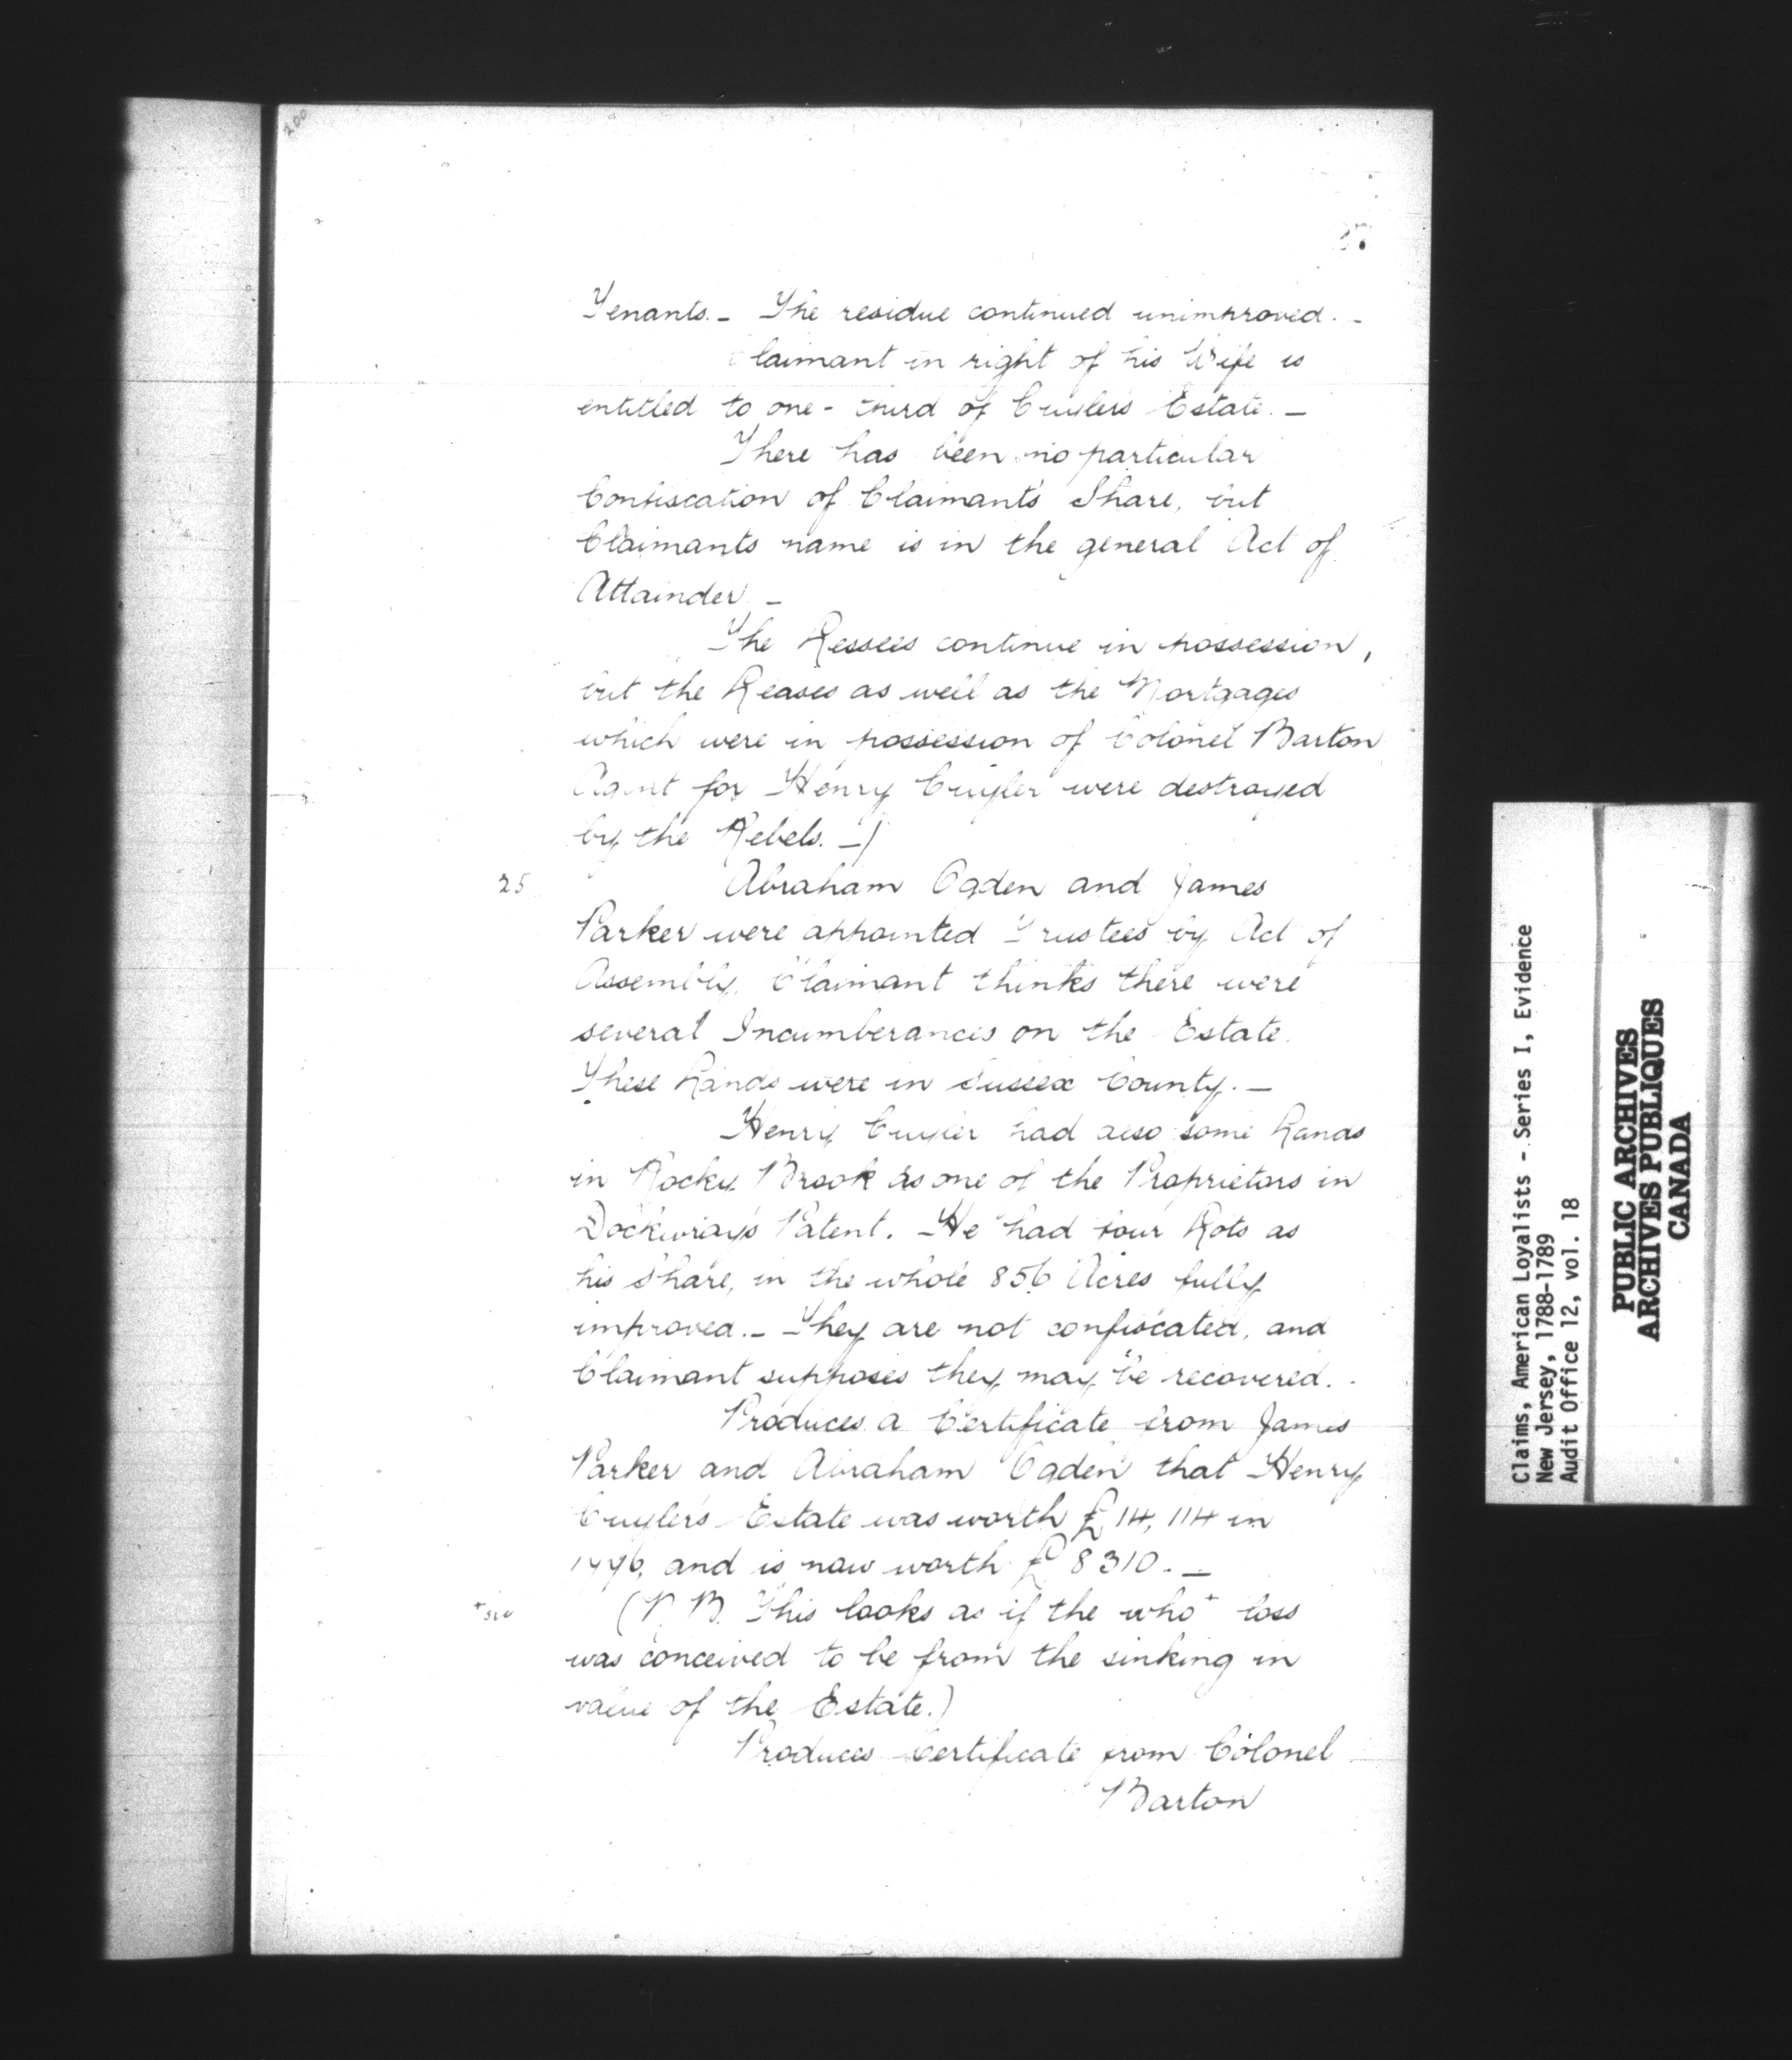 200
37
Tenants. - The residue continued unimproved. -
Claimant in right of his Wife is
entitled to one-third of Cuyler's Estate. -
There has been no particular
Confiscation of Claimant's Share, but
Claimants name is in the general Act of
Attainder. -
The Lessees continue in possession,
but the Leases as well as the Mortgages
which were in possession of Colonel Barton
Agent for Henry Cuyler were destroyed
by the Rebels. -)
25 Abraham Ogden and James
Parker were appointed Trustees by Act of
Assembly. Claimant thinks there were
several Incumberances on the Estate.
These Lands were in Sussex County. -
Henry Cuyler had also some Lands
in Rocky Brook as one of the Proprietors in
Dockwray's Patent. - He had four Lots as
his share, in the whole 856 Acres fully
improved. - They are not confiscated, and
Claimant supposes they may be recovered. -
Produces a Certificate from James
Parker and Abraham Ogden that Henry
Cuyler's Estate was worth £14,114 in
1776, and is now worth £8310. -
+ sic (N.B. This looks as if the who+ loss
was conceived to be from the sinking in
value of the Estate.)
Produces Certificate from Colonel
Barton
Claims, American Loyalists - Series I, Evidence
New Jersey, 1788-1789
Audit Office 12, vol. 18
PUBLIC ARCHIVES
ARCHIVES PUBLIQUES
CANADA